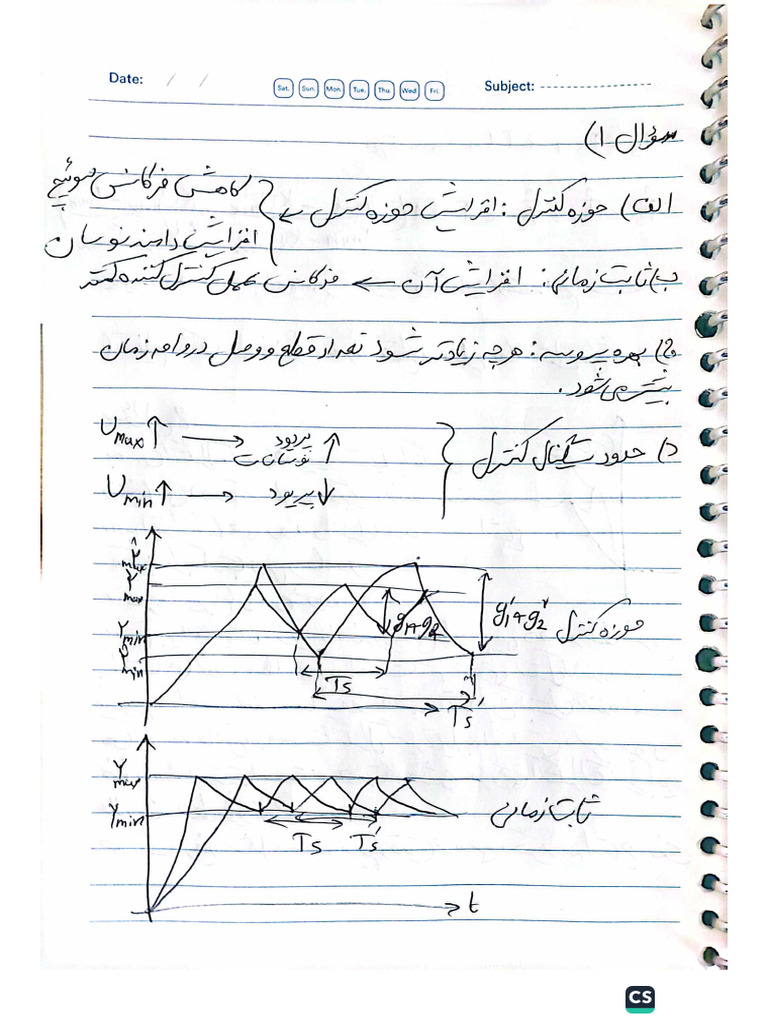 Date: / /
Sat. Sun. Mon. Tue. Thu. Wed Fri.
Subject:
سؤال ۱)
الف) حوزه کنترل : افزایش حوزه کنترل ← کاهش فرکانس سوئیچ
افزایش دامنه نوسان
ب) ثابت زمانی : افزایش آن ← فرکانس عمل کنترل کننده کمتر
ج) بهره پروسه : هرچه زیادتر شود تعداد قطع و وصل در واحد زمان
بیشتر می‌شود.
د) حدود سیگنال کنترل
Umax ↑ → پریود نوسانات ↑
Umin ↑ → پریود ↓
Ymax
Ymax
Ymin
Ymin
g1+g2
g'1+g'2
حوزه کنترل
Ts
Ts'
Ymax
Ymin
ثابت زمانی
Ts Ts'
t
CS